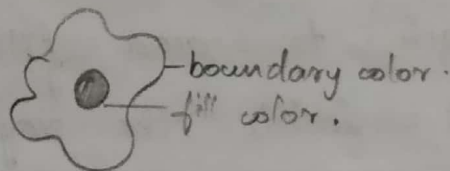 boundary color.
fill color.